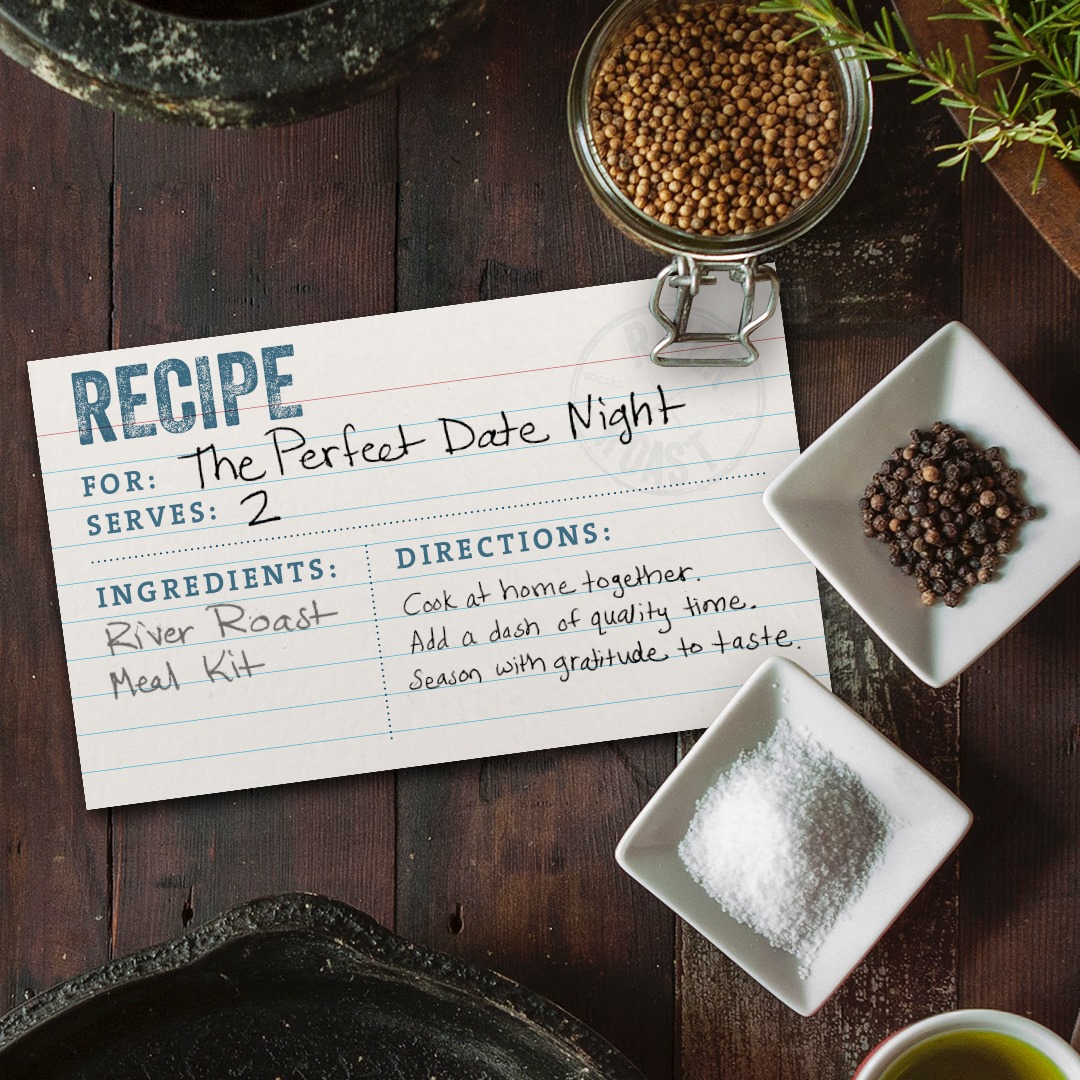 RECIPE
FOR: The Perfect Date Night
SERVES: 2
INGREDIENTS:
River Roast
Meal Kit
DIRECTIONS:
Cook at home together.
Add a dash of quality time.
Season with gratitude to taste.
RIVER
SOCIAL
ROAST